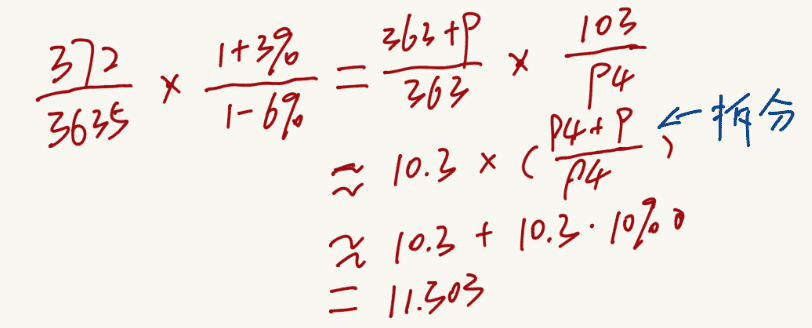 372/3635 × (1+3%)/(1-6%) = (363+9)/363 × 103/94
≈ 10.3 × ((94+9)/94) ← 拆分
≈ 10.3 + 10.3·10%
= 11.303